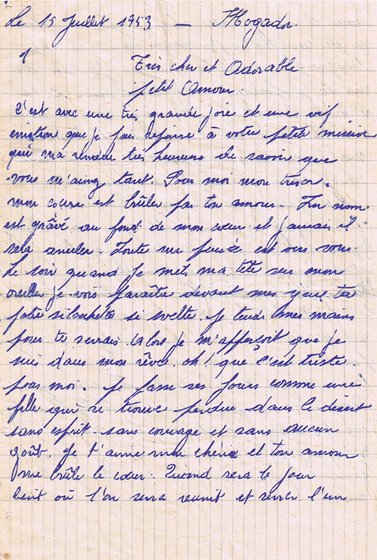 Le 15 Juillet 1953 — Mogador.
1
Très cher et Adorable
petit Amour.
C'est avec une très grande joie et une vif
emotion que je fais reponse à votre petite missive
qui m'a rendu très heureux de savoir que
vous m'aimez tant. Pour moi mon trésor.
mon cœur est brûler par ton amour. Ton nom
est gravé au fond de mon cœur et jamais il
sera annuler. Toute ma pensée est vers vous.
Le soir quand je mets ma tête sur mon
oreiller je vois paraître devant mes yeux ta
jolie silhouette si svelte. je tends mes mains
pour te serrer alors je m'apperçoit que je
suis dans mon rêve. oh! que c'est triste
pour moi. je passe ses jours comme une
fille qui se trouve perdue dans le désert
sans esprit. sans courage et sans aucun
goût. je t'aime mon chéri et ton amour
me brûle le cœur. Quand sera le jour
béni où l'on sera reunit et serrer l'un